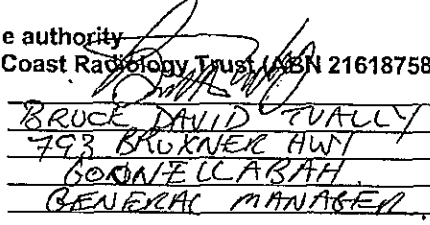 e authority
Coast Radiology Trust (ABN 21618758
BRUCE DAVID TUALLY
793 BRUXNER HWY
GOONELLABAH
GENERAL MANAGER.